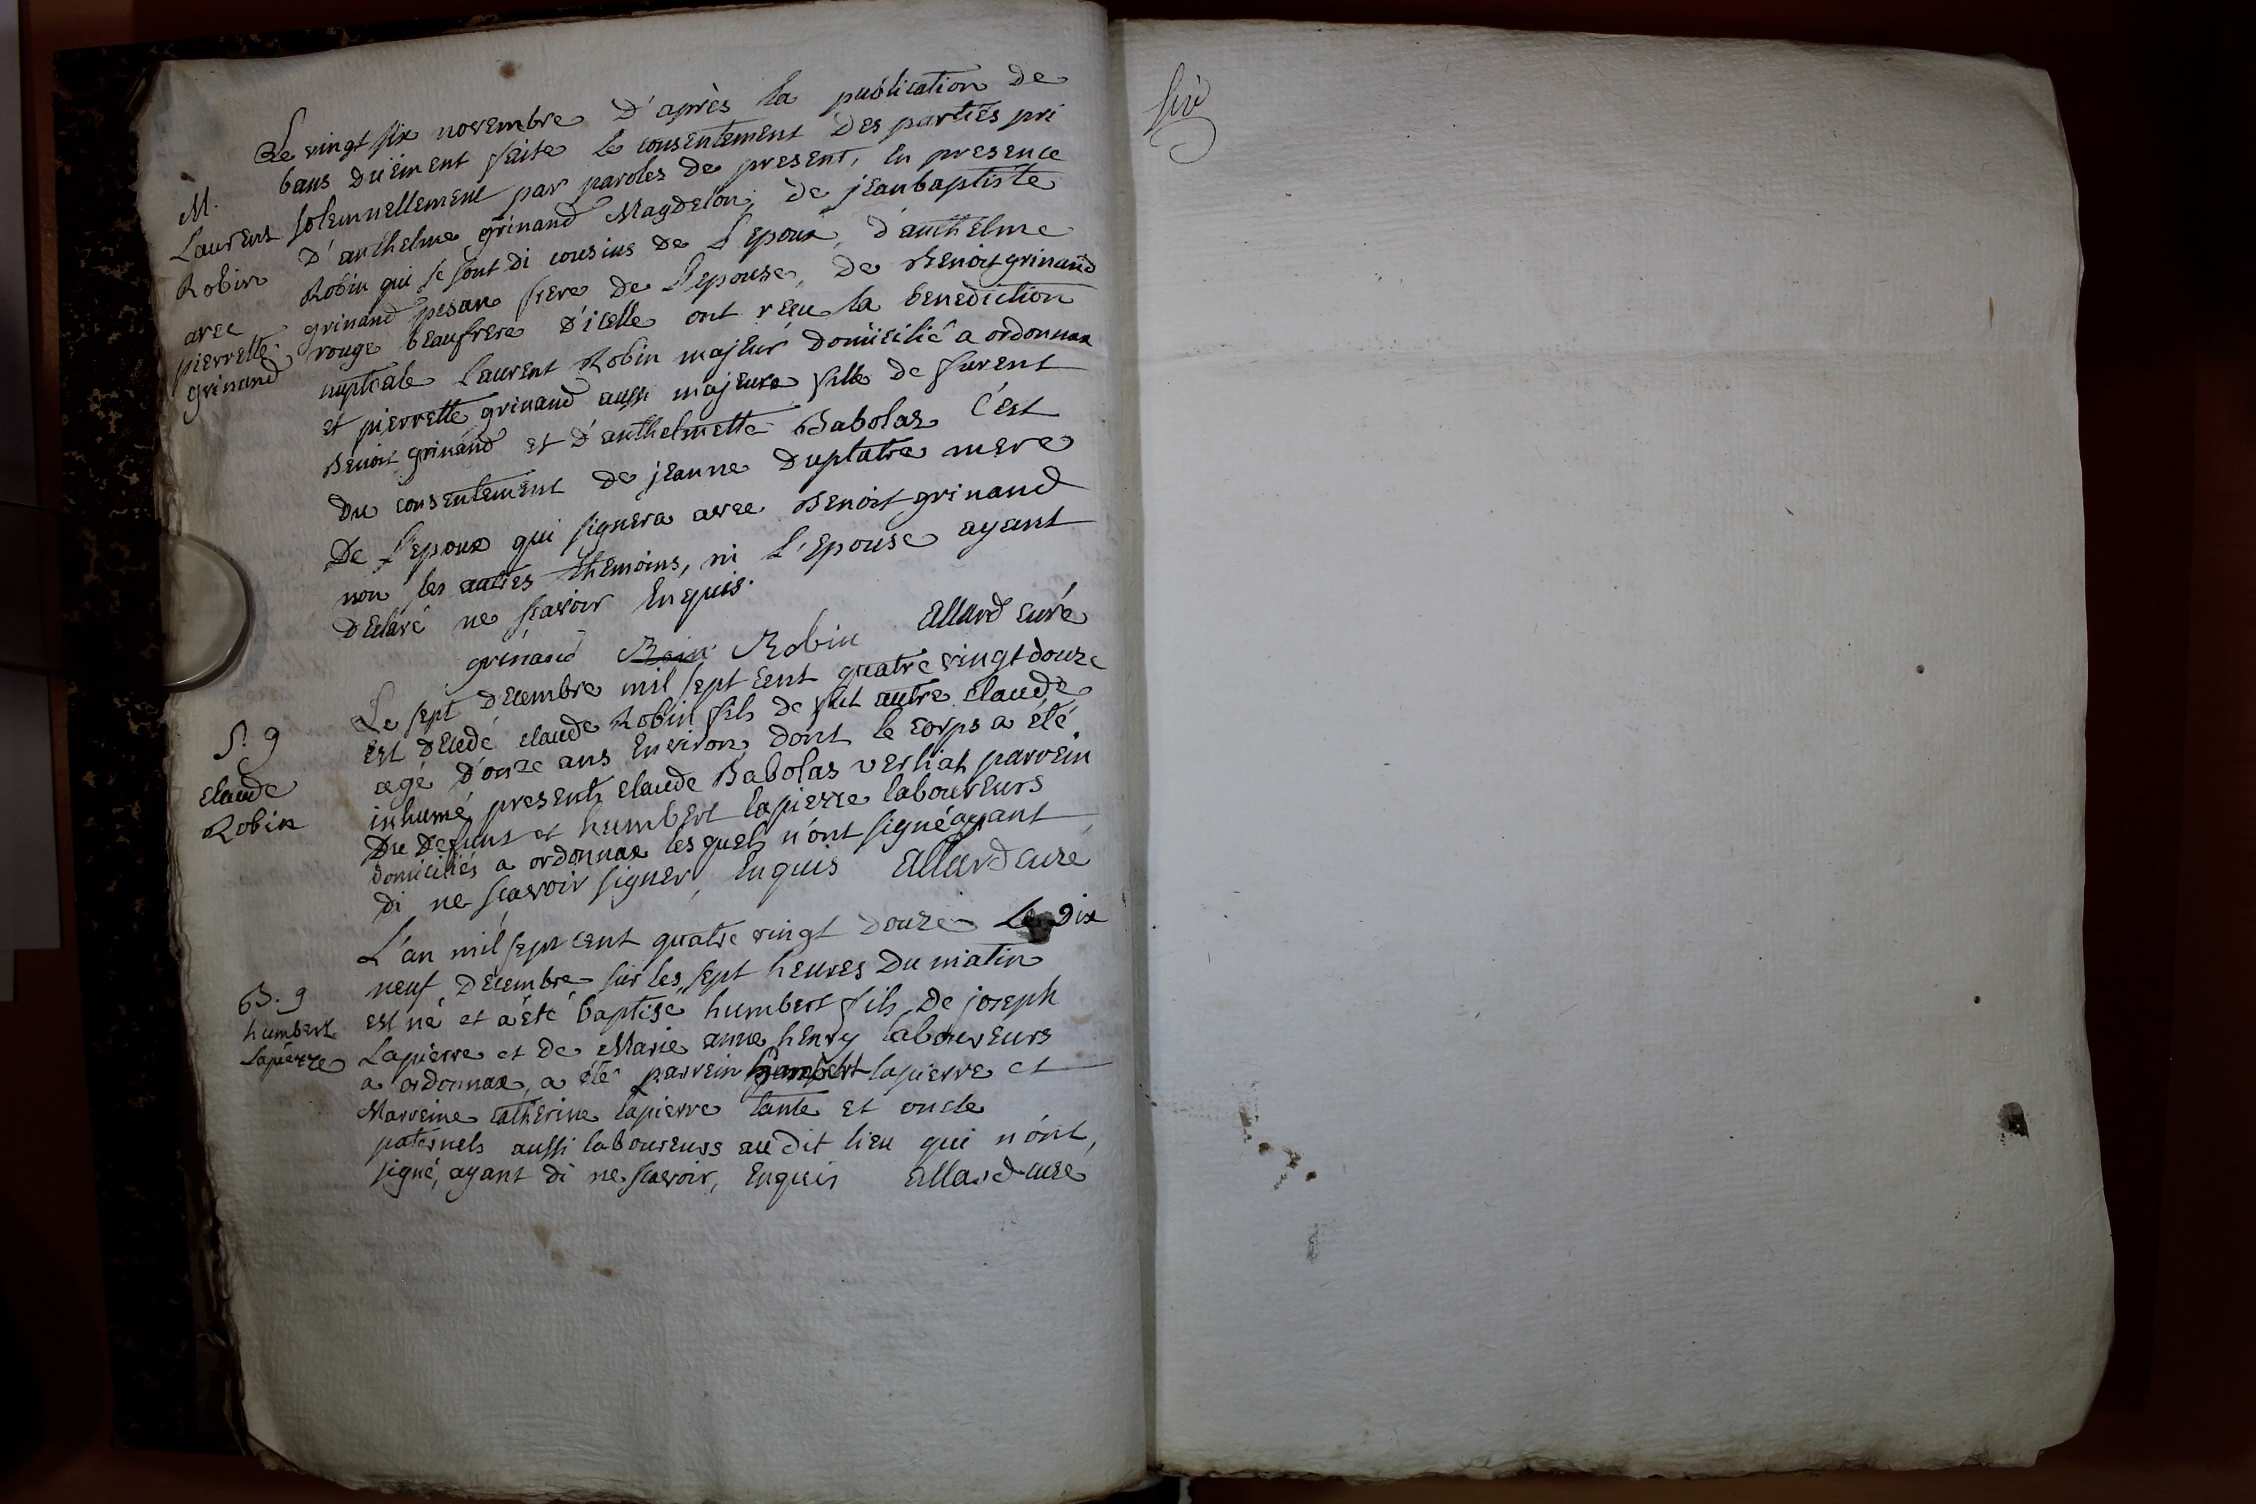 Le vingt six novembre d'après la publication de
bans duëment faite le consentement des parties pri
solemnellement par paroles de present, en presence
d'anthelme grinand Magdelon, de jean baptiste
Robin qui se sont di cousins de l'epoux, d'anthelme
grinand pesan frere de l'epouse, de Benoit grinand
rouge beaufrere d'icelle ont reçu la benediction
nuptiale Laurent Robin majeur domicilié a ordonnax
et pierrette grinand aussi majeure fille de furent
Benoit grinand et d'anthelmette Babolas c'est
du consentement de jeanne duplatre mere
De l'epoux qui signera avec Benoit grinand
non les autres themoins, ni l'epouse ayant
declaré ne scavoir enquis.
grinand Robin allard curé
M.
Laurent
Robin
avec
pierrette
grinand
Le sept decembre mil sept cent quatre vingt douze
est decedé claude Robin fils de fut autre claude
agé d'onze ans environ, dont le corps a été
inhumé, presents claude Babolas verliat parrein
du defunt et humbert lapierre laboureurs
domiciliés a ordonnax lesquels n'ont signé ayant
di ne scavoir signer, enquis allard curé
S. 9
claude
Robin
L'an mil sept cent quatre vingt douze Le dix
neuf decembre sur les sept heures du matin
est né et a été baptisé humbert fils de joseph
Lapierre et de Marie anne henry laboureurs
a ordonnax, a été parrein humbert lapierre et
Marreine catherine lapierre tante et oncle
paternels aussi laboureurs au dit lieu qui n'ont
signé, ayant di ne scavoir, enquis allard curé
B. 9
humbert
Lapierre